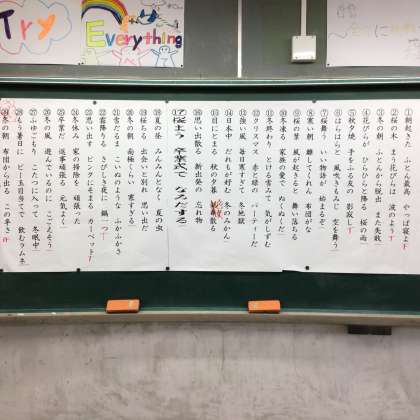 Try
Everything
①朝起きて ふとん最高 もう寝よ
②桜の木 まうと花びら 波のよう
③冬の朝 ふとんから脱出 また失敗
④花びらが ひとひら降る 桜の雨
⑤秋夕焼 手をふる友の 影寂し
⑥はらはらと 風吹く 空を舞う
⑦桜舞う いい物語が 始まるぞ
⑧寒い朝 離してくれん 布団がな
⑨桜の 風が起きると 舞い落ちる
⑩冬凍る 家族の愛で ぬくぬくだ
⑪冬終わり とける雪みて 気がしずむ
⑫クリスマス 赤と緑の パーティーだ
⑬強い風 毎日寒すぎて 冬地獄
⑭日本中 だれもが好む 冬のみかん
⑮目にとまる 秋の夕暮 散る
⑯思い出散る 新出発の 忘れ物
⑰桜まう 卒業式で なみだする
⑱夏の昼 みんみんとなく 夏の虫
⑲桜ちる 出会いと別れ 思い出だ
⑳冬の朝 南極くらい 寒すぎる
㉑雪だるま こいぬのような ふかふかさ
㉒霜降りる さびしき夜に 鍋一つ
㉓思い出す ピンクに染まる カーペット
㉔冬休み 家の掃除を 頑張った
㉕卒業だ 返事頑張る 元気よく
㉖冬の風 遊んでいるのに こごえそう
㉗ふゆごもり こたつに入って 冬眠中
㉘もう暑日に ビー玉目当てで 飲むラムネ
㉙冬の朝 布団から出る この辛さ